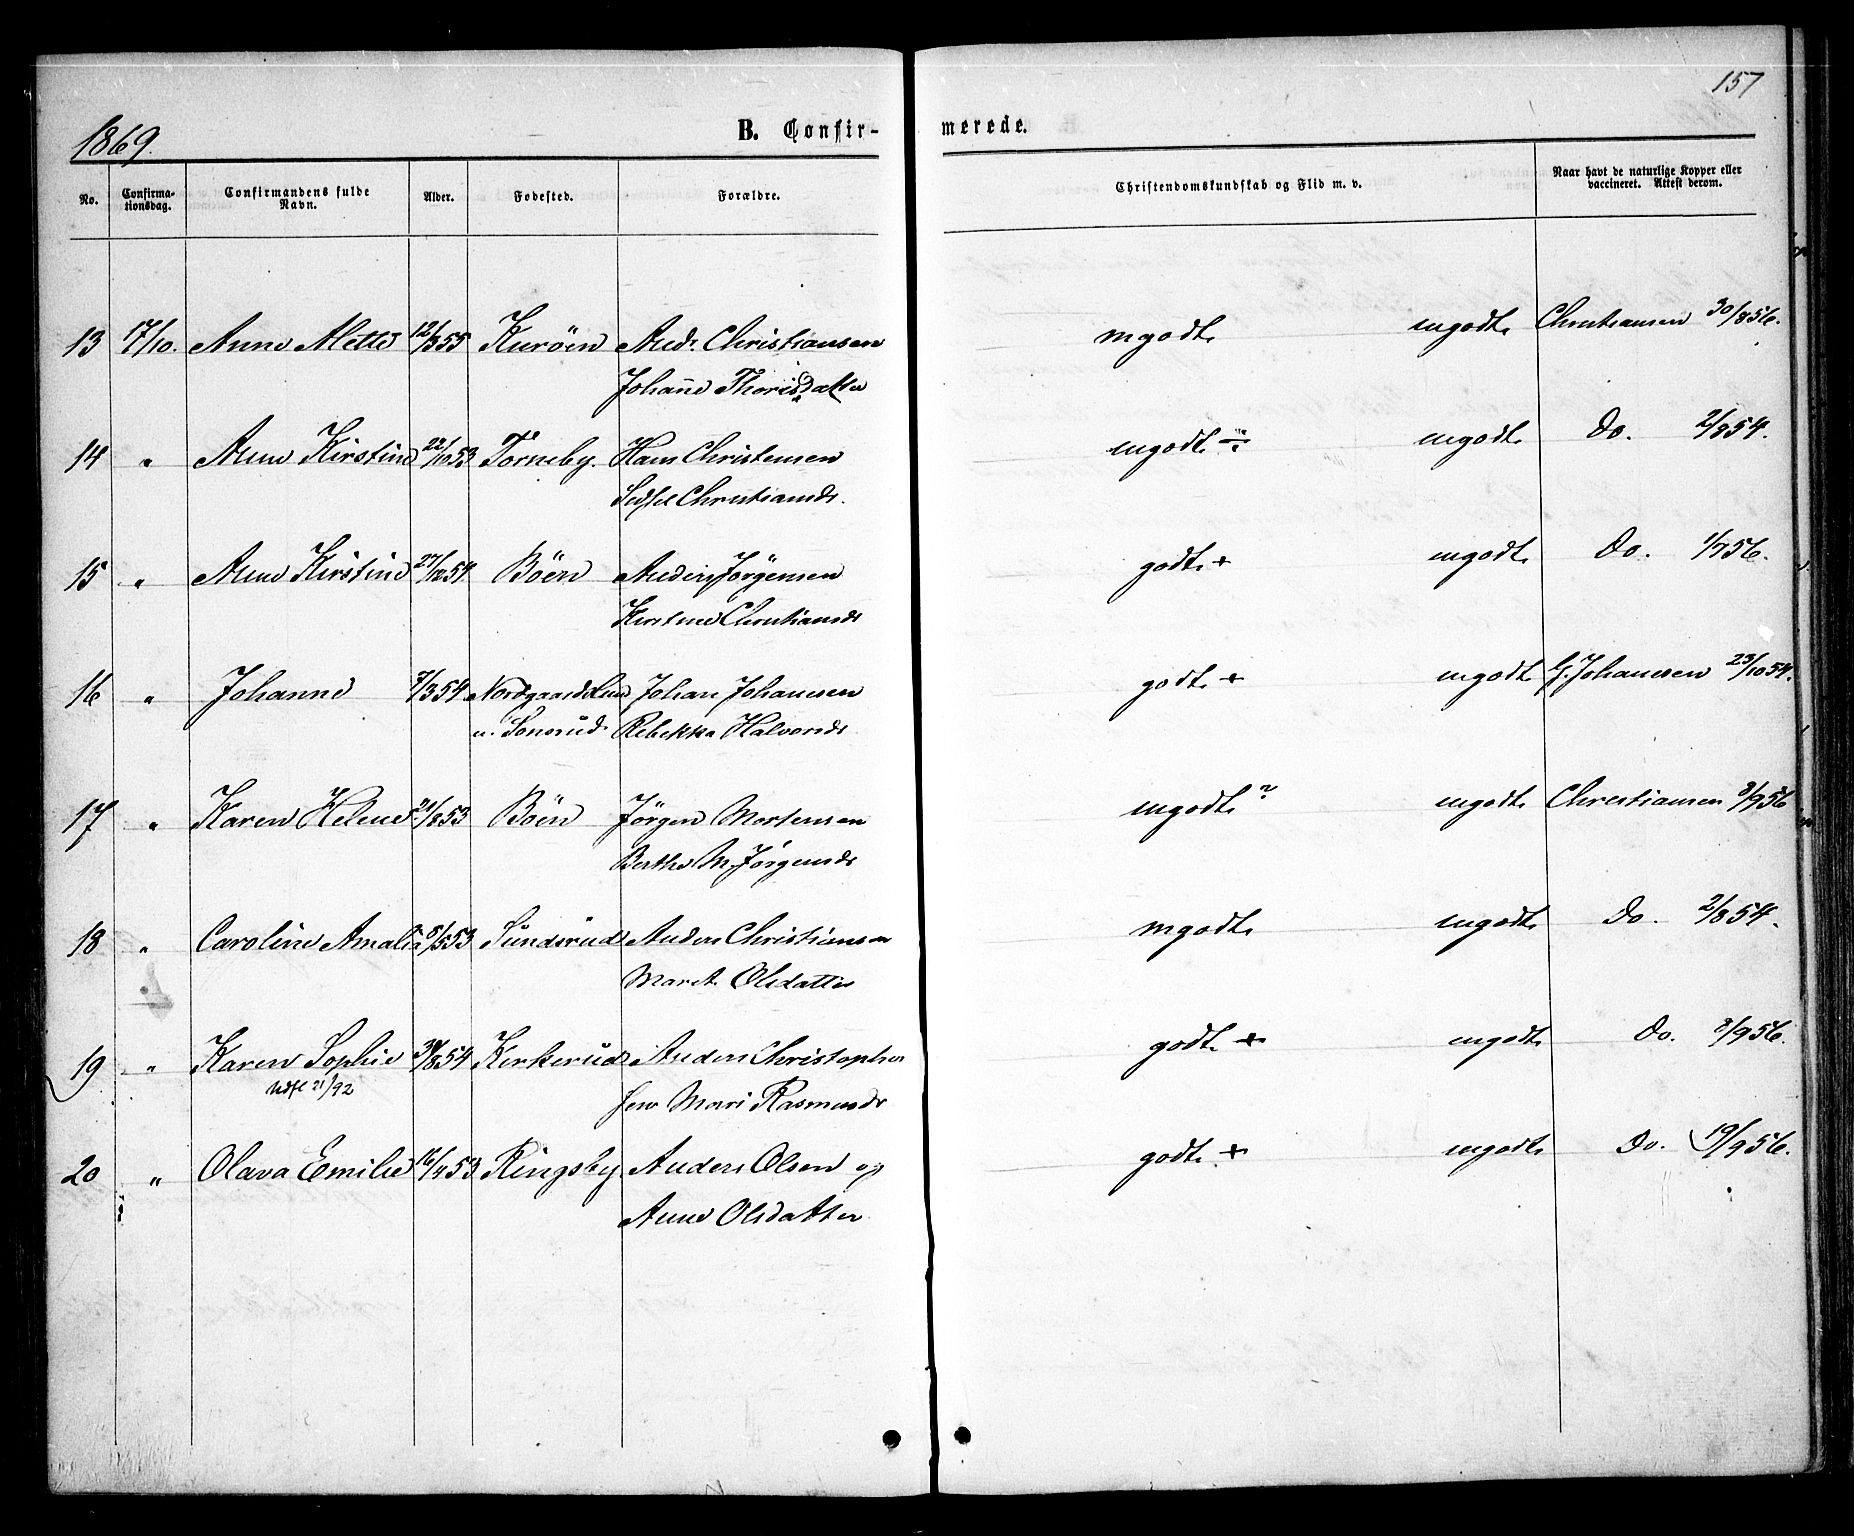 157
1869.
B. Confir- merede.
No.
Confirma-
tionsdag.
Confirmandens fulde
Navn.
Alder.
Fødested.
Forældre.
Christendomskundskab og Flid m. v.
Naar havt de naturlige Kopper eller
vaccineret. Attest derom.
13 17/10. Anne Mette 12/3 55 Kurøen And. Christiansen mgodt. mgodt. Christiansen 30/8 56.
Johanne Thorisdatter
14 " Anne Kirstine 22/10 53 Torneby. Hans Christensen mgodt. ÷ mgodt. Do. 2/8 54.
Christiansd.
15 " Anne Kirstine 27/12 54. Böen Anders Jørgensen godt. + mgodt. Do. 1/7 56.
Kirstine Christiansd.
16 " Johanne /3 54. Johan Johansen godt. + mgodt. Johansen 23/10 54.
u. Sonsrud. Rebekka Halvorsd.
17 " Karen Helene 21/8 53 Böen Jørgen Mortensen mgodt. ? mgodt. Christiansen 3/9 56
Berthe M. Jørgensd.
18 " Caroline Amalia /5 53 Sundsrud Anders Christiansen mgodt. mgodt. Do. 2/8 54.
Maret. Olsdatter
19 " Karen Sophie 30/8 54 Kerkerud Anders Christopher godt. + mgodt. Do. 3/9 56.
Udfl 21/92
sen Mari Rasmusd.
20 " Olava Emilie 16/4 53 Ringsby. Anders Olsen og godt. + mgodt. Do. 19/9 56.
Anne Olsdatter